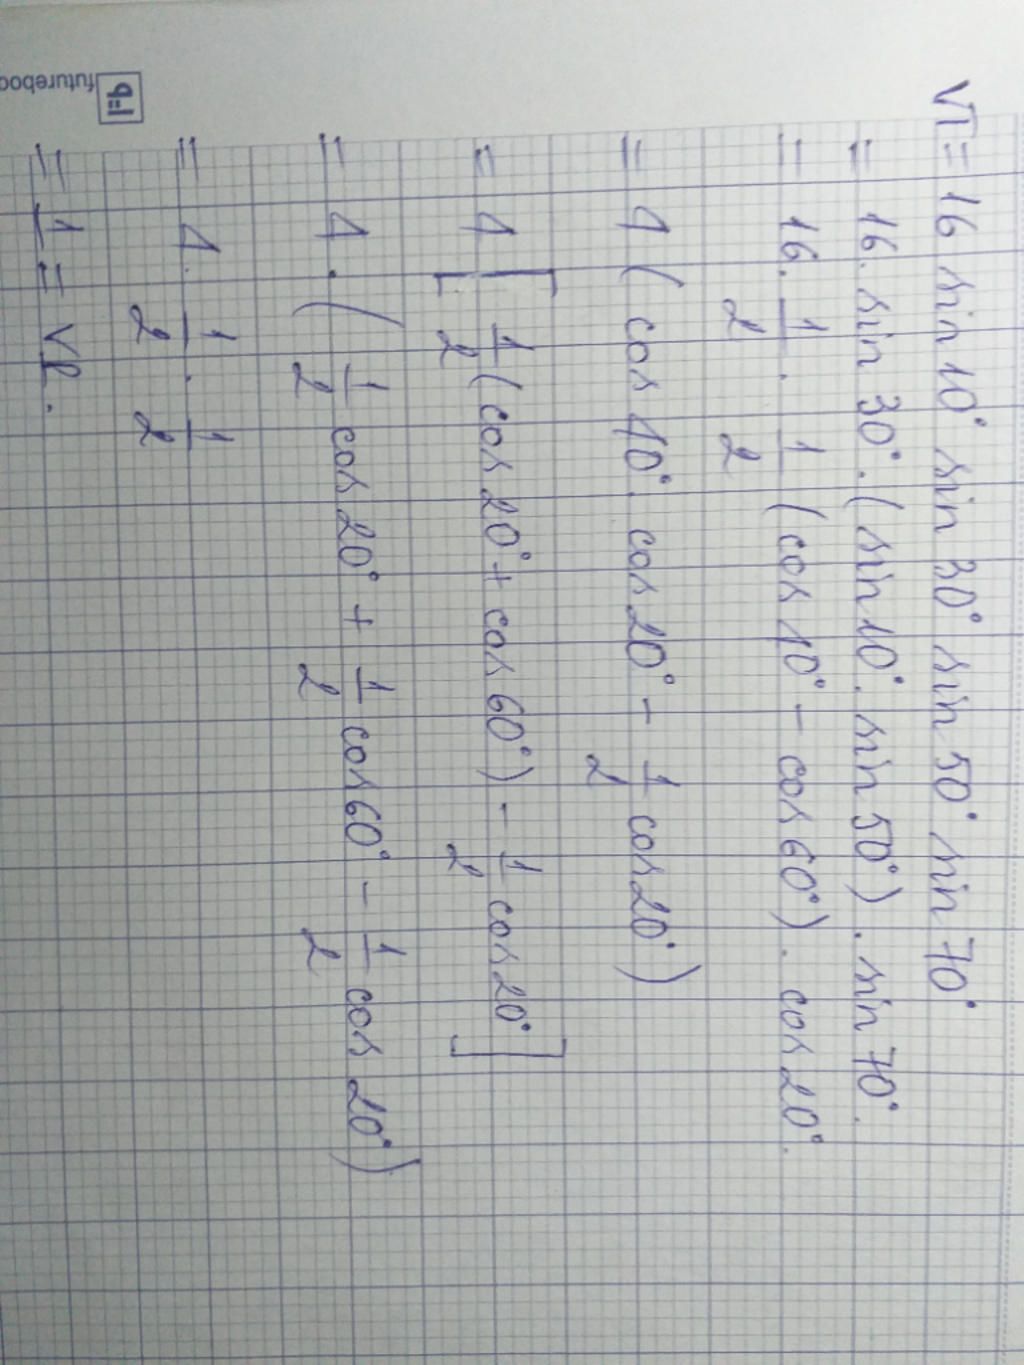 VT = 16 sin 10° sin 30° sin 50° sin 70°
= 16. sin 30°. (sin 10°. sin 50°). sin 70°.
= 16. 1/2 . 1/2 (cos 40° - cos 60°). cos 20°.
= 4 (cos 40°. cos 20° - 1/2 cos 20°)
= 4 [ 1/2 (cos 20° + cos 60°) - 1/2 cos 20° ]
= 4. ( 1/2 cos 20° + 1/2 cos 60° - 1/2 cos 20°)
= 4. 1/2 . 1/2
= 1 = VP.
futureboo